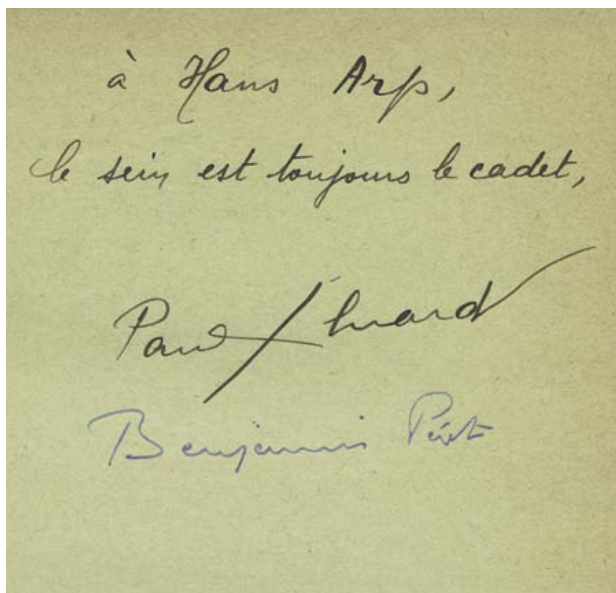 à Hans Arp,
le sein est toujours le cadet,
Paul Éluard
Benjamin Péret